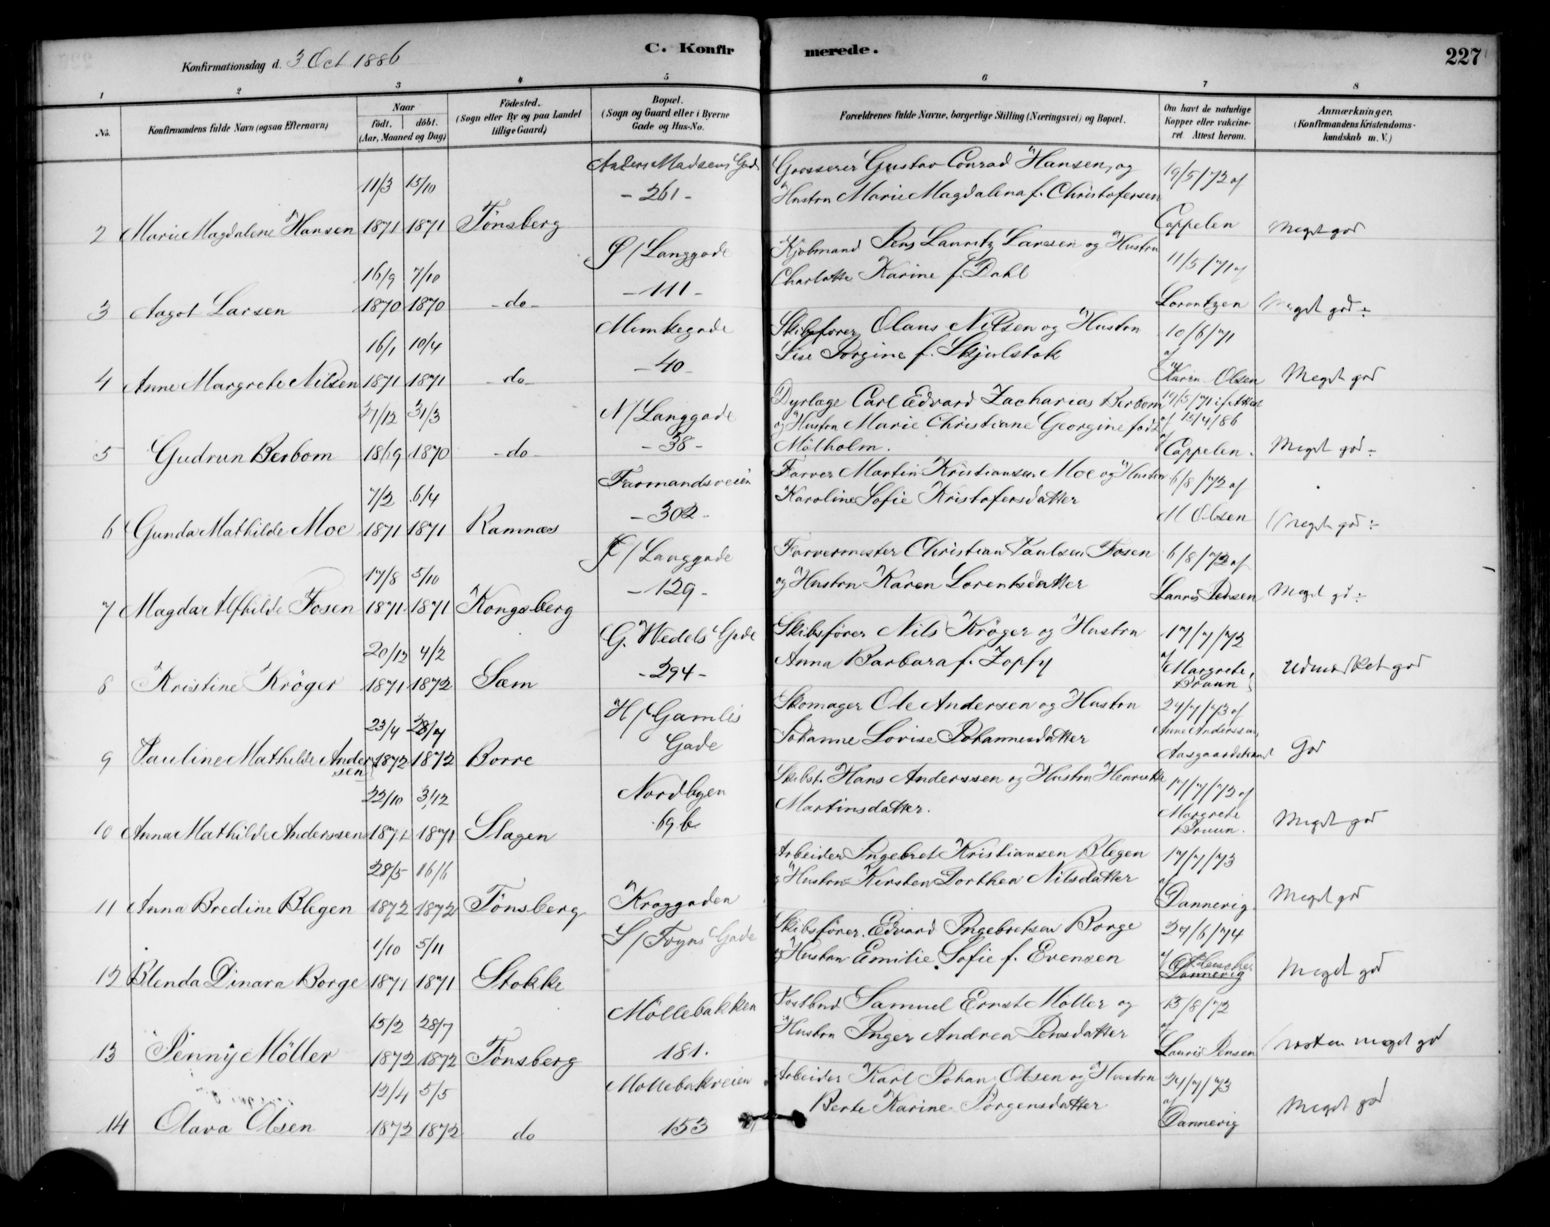 Konfirmationsdag d. 3 Oct 1886
C. Konfirmerede.
227
1 2 3 4 5 6 7 8
No.
Konfirmandens fulde Navn (ogsaa Efternavn)
Naar
født. døbt.
(Aar, Maaned og Dag)
Fødested.
(Sogn eller By og paa Landet
tillige Gaard)
Bopæl.
(Sogn og Gaard eller i Byerne
Gade og Hus-No.
Forældrenes fulde Navne, borgerlige Stilling (Næringsvei) og Bopæl.
Om havt de naturlige
Kopper eller vakcineret.
Attest herom.
Anmærkninger.
(Konfirmandens Kristendomskundskab
m. V.)
Anders Madsens Gade Grosserer Gustav Conrad Hansen, og
11/3 15/10 - 261 - Hustru Marie Magdalena f. Christofersen 19/5/72 af
2 Marie Magdalene Hansen 1871 1871 Tønsberg Cappelen Meget god
Ø/Langgade Kjøbmand Jens Lauritz Larsen og Hustru
16/9 7/10 - 111 - Charlotte Karine f. Dahl 11/5/71 af
3 Aagot Larsen 1870 1870 - do - Lorentzen Meget god ÷
Munkegade Skibsfører Olaus Nilsen og Hustru 10/6/71
16/1 10/4 - 40 - Lise Jorgine f. Skjulstok af
4 Anne Margrete Nilsen 1871 1871 - do - Karen Olsen Meget god
N/Langgade Dyrlæge Carl Edvard Zacharias Berbom 19/5/71 if. Attest
31/12 31/3 - 38 - og Hustru Marie Christiane Georgine født af 15/4/86
5 Gudrun Berbom 1869 1870 - do - Mølholm. af Cappelen. Meget god ÷
Farmandsveien Farver Martin Kristiansen Moe og Hustru 6/8/72 af
7/2 6/4 - 302 - Karoline Sofie Kristofersdatter
6 Gunda Mathilde Moe 1871 1871 Ramnæs M Olsen Meget god ÷
Ø/Langgade Farvermester Christian Paulsen Fosen 6/8/72 af
17/8 5/10 - 129 - og Hustru Karen Lorentsdatter
7 Magda Alfhilde Fosen 1871 1871 Kongsberg Lauris Jensen Meget gd ÷
G. Wedels Gade Skibsfører Nils Krøger og Hustru 17/7/72
20/12 4/2 - 294 - Anna Barbara f. Zopfy af Margrete
8 Kristine Krøger 1871 1872 Sæm Bruun Udmærket god
H/Gamle Skomager Ole Andersen og Hustru 24/7/73 af
23/4 28/4 Gade Johanne Lovise Johannesdatter Anne Anderssen,
9 Pauline Mathilde Andersen 1872 1872 Borre Aasgaardstrand God
Nordbyen Skibst. Hans Anderssen og Hustru Henrikke 17/7/72 af
22/10 3/12 69b Martinsdatter. Margrete
10 Anna Mathilde Anderssen 1871 1871 Slagen Bruun. Meget god
Arbeider Ingebret Kristiansen Blegen 17/7/73
28/5 16/6 Kroggaden og Hustru Kirsten Dorthea Nilsdatter af
11 Anna Bredine Blegen 1872 1872 Tønsberg Dannevig. Meget god
S/Foyns Gade Skibsfører Edvard Ingebretsen Borge 24/6/74
1/10 5/11 og Hustru Emilie Sofie f. Evensen af
12 Blenda Dinara Borge 1871 1871 Stokke Dannevig Meget god
Møllebakken Postbud Samuel Ernst Møller og 13/8/72
15/2 28/7 181. Hustru Inger Andrea Jensdatter af
13 Jenny Møller 1872 1872 Tønsberg Lauris Jensen Næsten meget god
Møllebakveien Arbeider Karl Johan Olsen og Hustru 24/7/73
12/4 5/5 153 Berte Karine Jørgensdatter af
14 Olava Olsen 1872 1872 do Dannevig Meget god